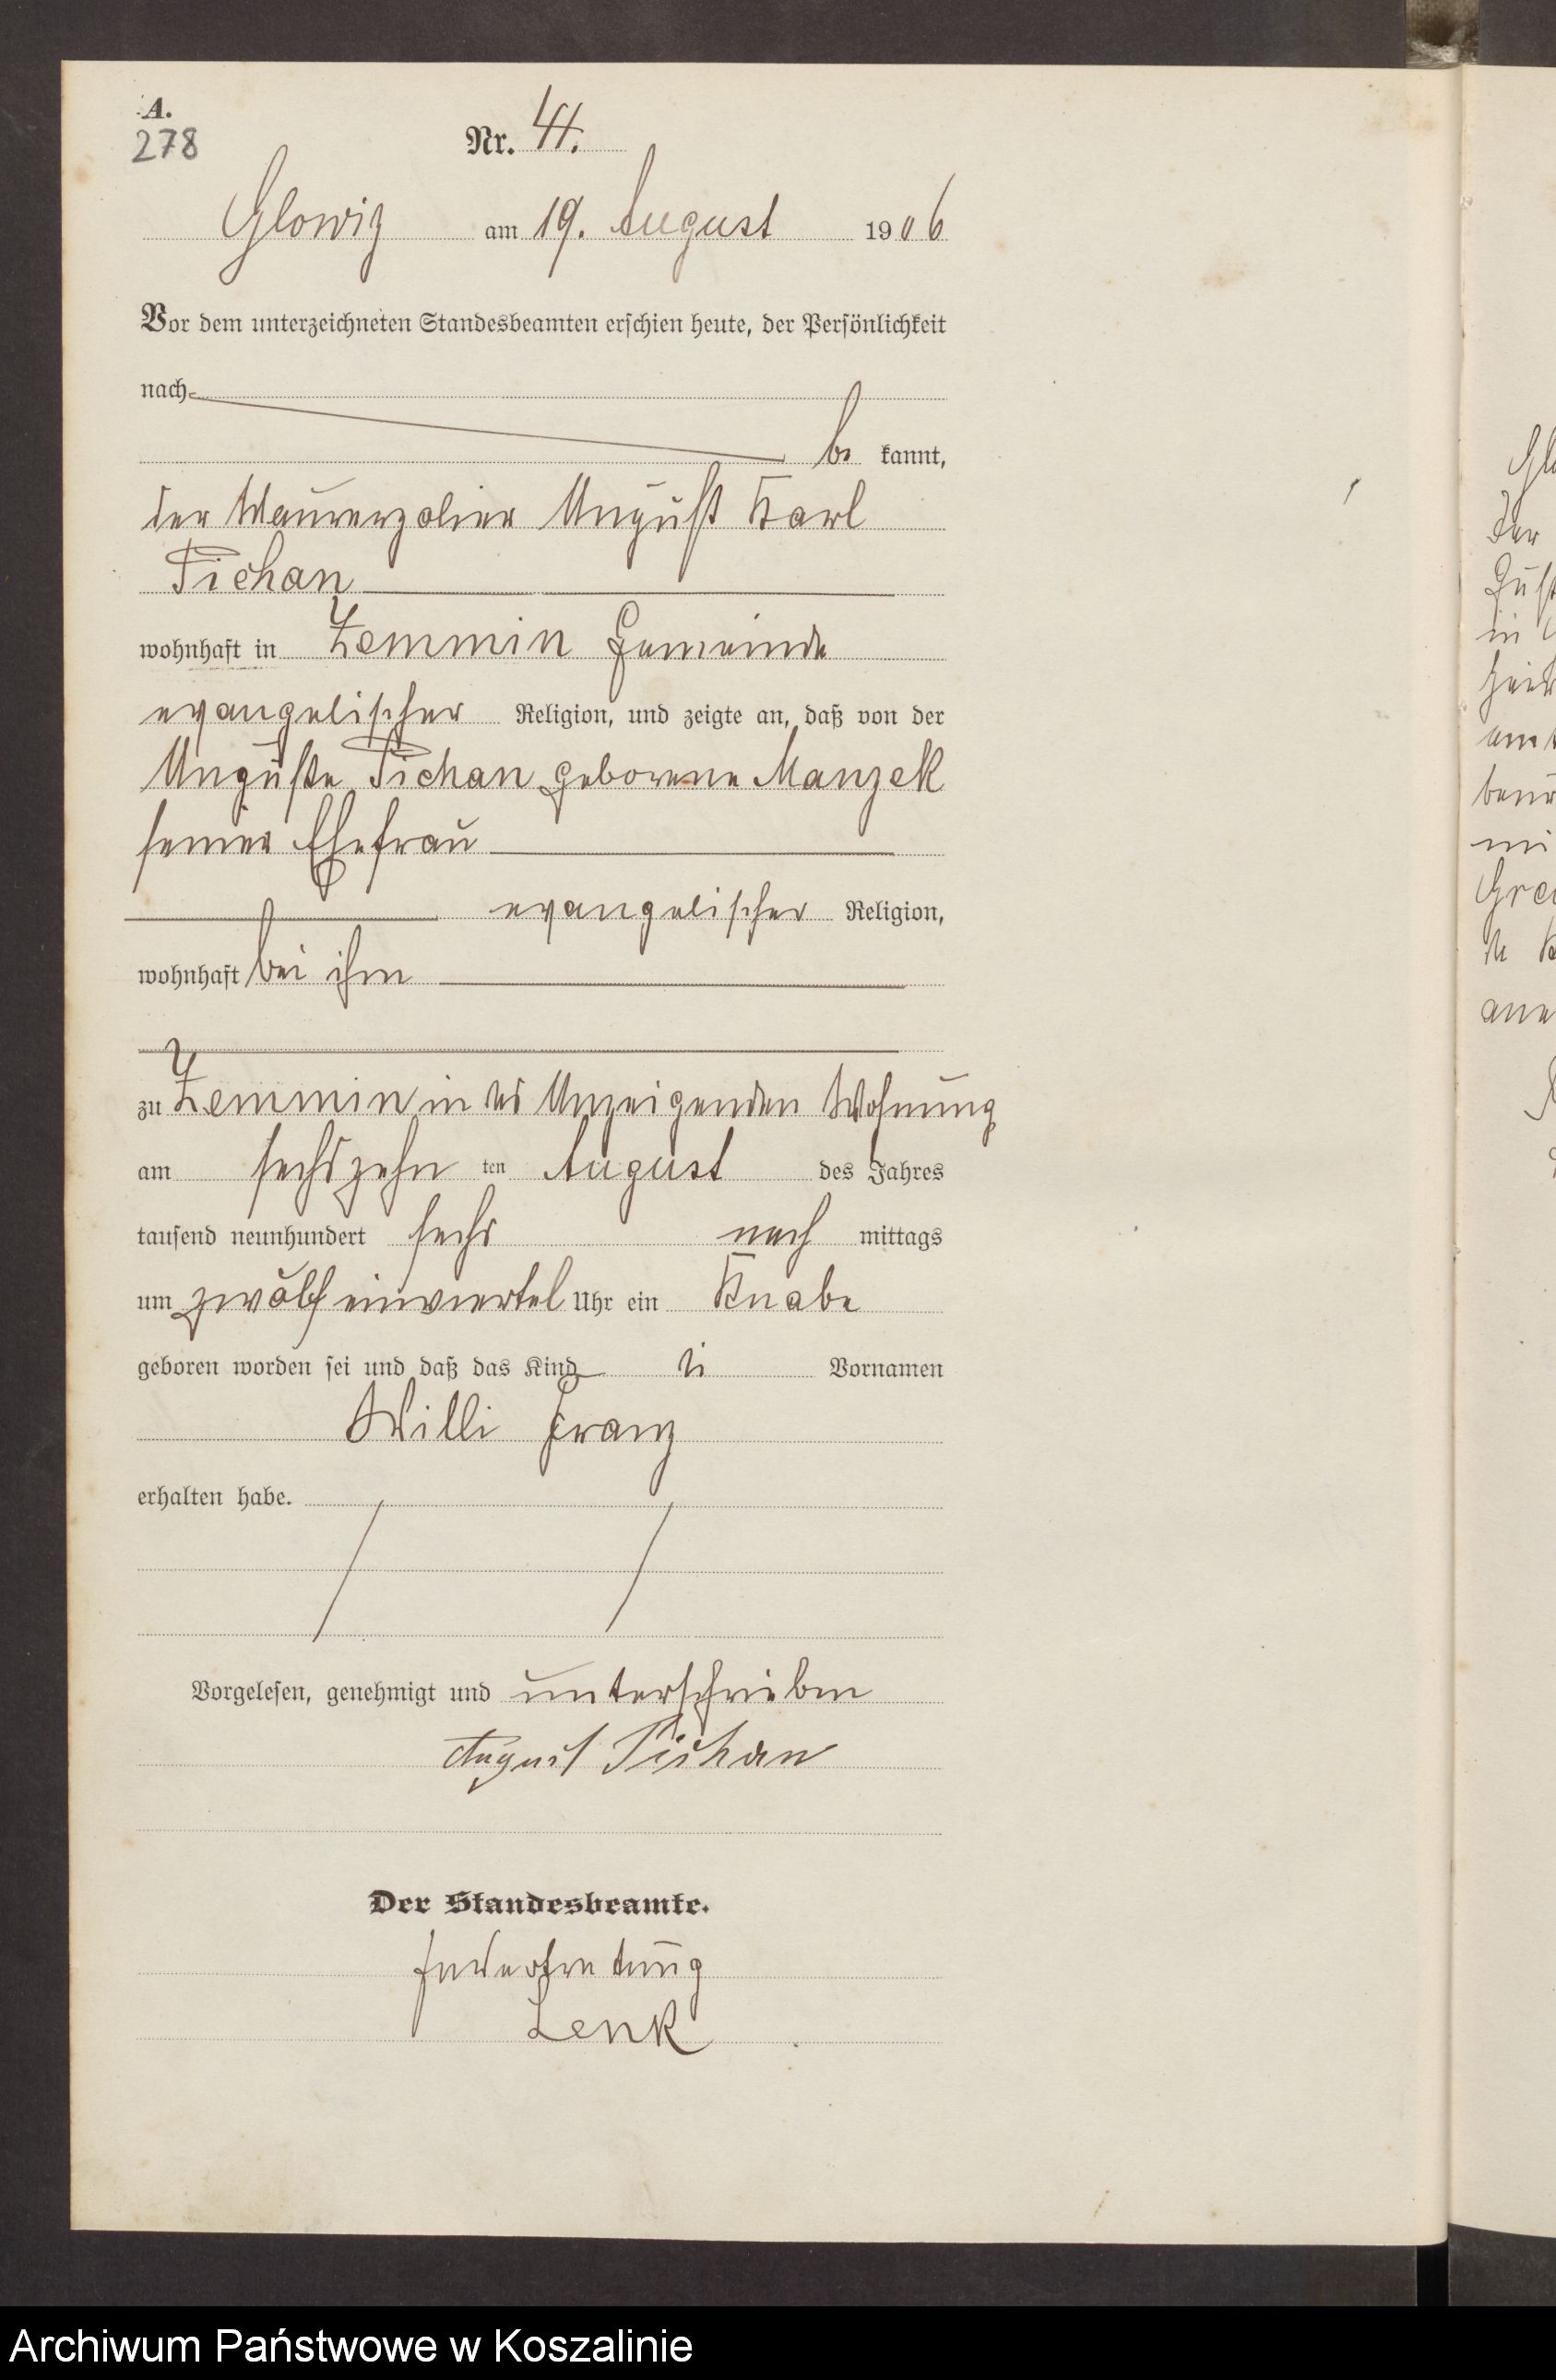 A.
278
Nr. 44.
Glowitz am 19. August 1906
Vor dem unterzeichneten Standesbeamten erschien heute, der Persönlichkeit
nach
be kannt,
der Maurerpolier August Karl
Pichan
wohnhaft in Zemmin Gemeinde
evangelischer Religion, und zeigte an, daß von der
Auguste Pichan geborene Manzek
seiner Ehefrau
evangelischer Religion,
wohnhaft bei ihm
zu Zemmin in des Anzeigenden Wohnung
am sechszehn ten August des Jahres
tausend neunhundert sechs nach mittags
um zwölf einviertel Uhr ein Knabe
geboren worden sei und daß das Kind die Vornamen
Willi Franz
erhalten habe.
Vorgelesen, genehmigt und unterschrieben
August Pichan
Der Standesbeamte.
In Vertretung
Lenk
Archiwum Państwowe w Koszalinie